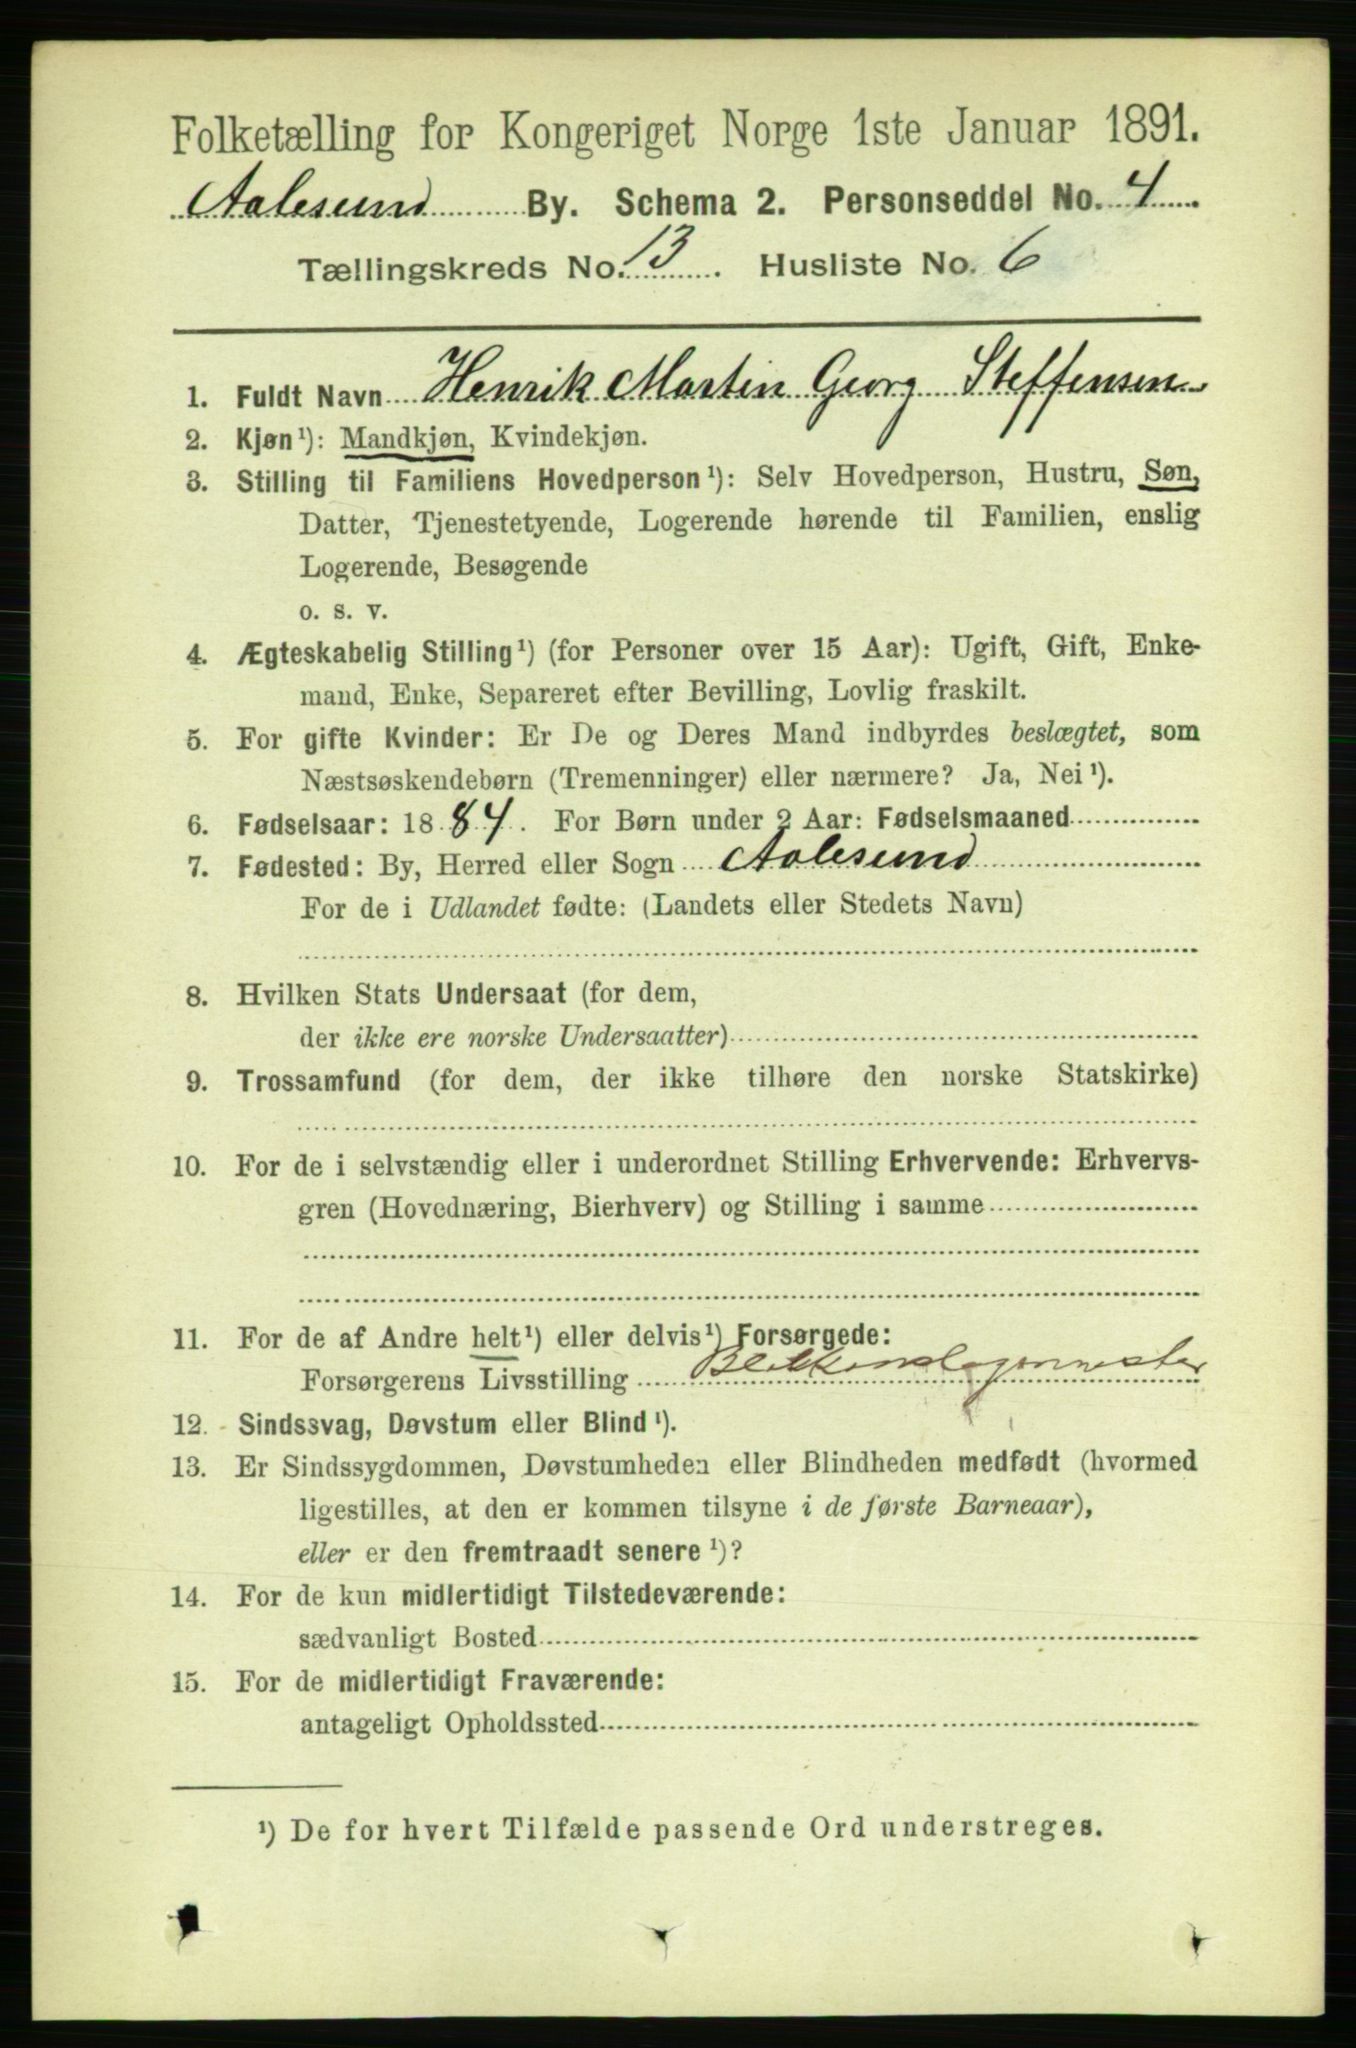 Folketælling for Kongeriget Norge 1ste Januar 1891.
Aalesund By. Schema 2. Personseddel No. 4
Tællingskreds No. 13. Husliste No. 6
1. Fuldt Navn Henrik Martin Georg Steffensen
2. Kjøn¹): Mandkjøn, Kvindekjøn.
3. Stilling til Familiens Hovedperson¹): Selv Hovedperson, Hustru, Søn,
Datter, Tjenestetyende, Logerende hørende til Familien, enslig
Logerende, Besøgende
o. s. v.
4. Ægteskabelig Stilling¹) (for Personer over 15 Aar): Ugift, Gift, Enke-
mand, Enke, Separeret efter Bevilling, Lovlig fraskilt.
5. For gifte Kvinder: Er De og Deres Mand indbyrdes beslægtet, som
Næstsøskendebørn (Tremenninger) eller nærmere? Ja, Nei¹).
6. Fødselsaar: 1884. For Børn under 2 Aar: Fødselsmaaned
7. Fødested: By, Herred eller Sogn Aalesund
For de i Udlandet fødte: (Landets eller Stedets Navn)
8. Hvilken Stats Undersaat (for dem,
der ikke ere norske Undersaatter)
9. Trossamfund (for dem, der ikke tilhøre den norske Statskirke)
10. For de i selvstændig eller i underordnet Stilling Erhvervende: Erhvervs-
gren (Hovednæring, Bierhverv) og Stilling i samme
11. For de af Andre helt¹) eller delvis¹) Forsørgede:
Forsørgerens Livsstilling Blikkenslagermester
12. Sindssvag, Døvstum eller Blind¹).
13. Er Sindssygdommen, Døvstumheden eller Blindheden medfødt (hvormed
ligestilles, at den er kommen tilsyne i de første Barneaar),
eller er den fremtraadt senere¹)?
14. For de kun midlertidigt Tilstedeværende:
sædvanligt Bosted
15. For de midlertidigt Fraværende:
antageligt Opholdssted
¹) De for hvert Tilfælde passende Ord understreges.